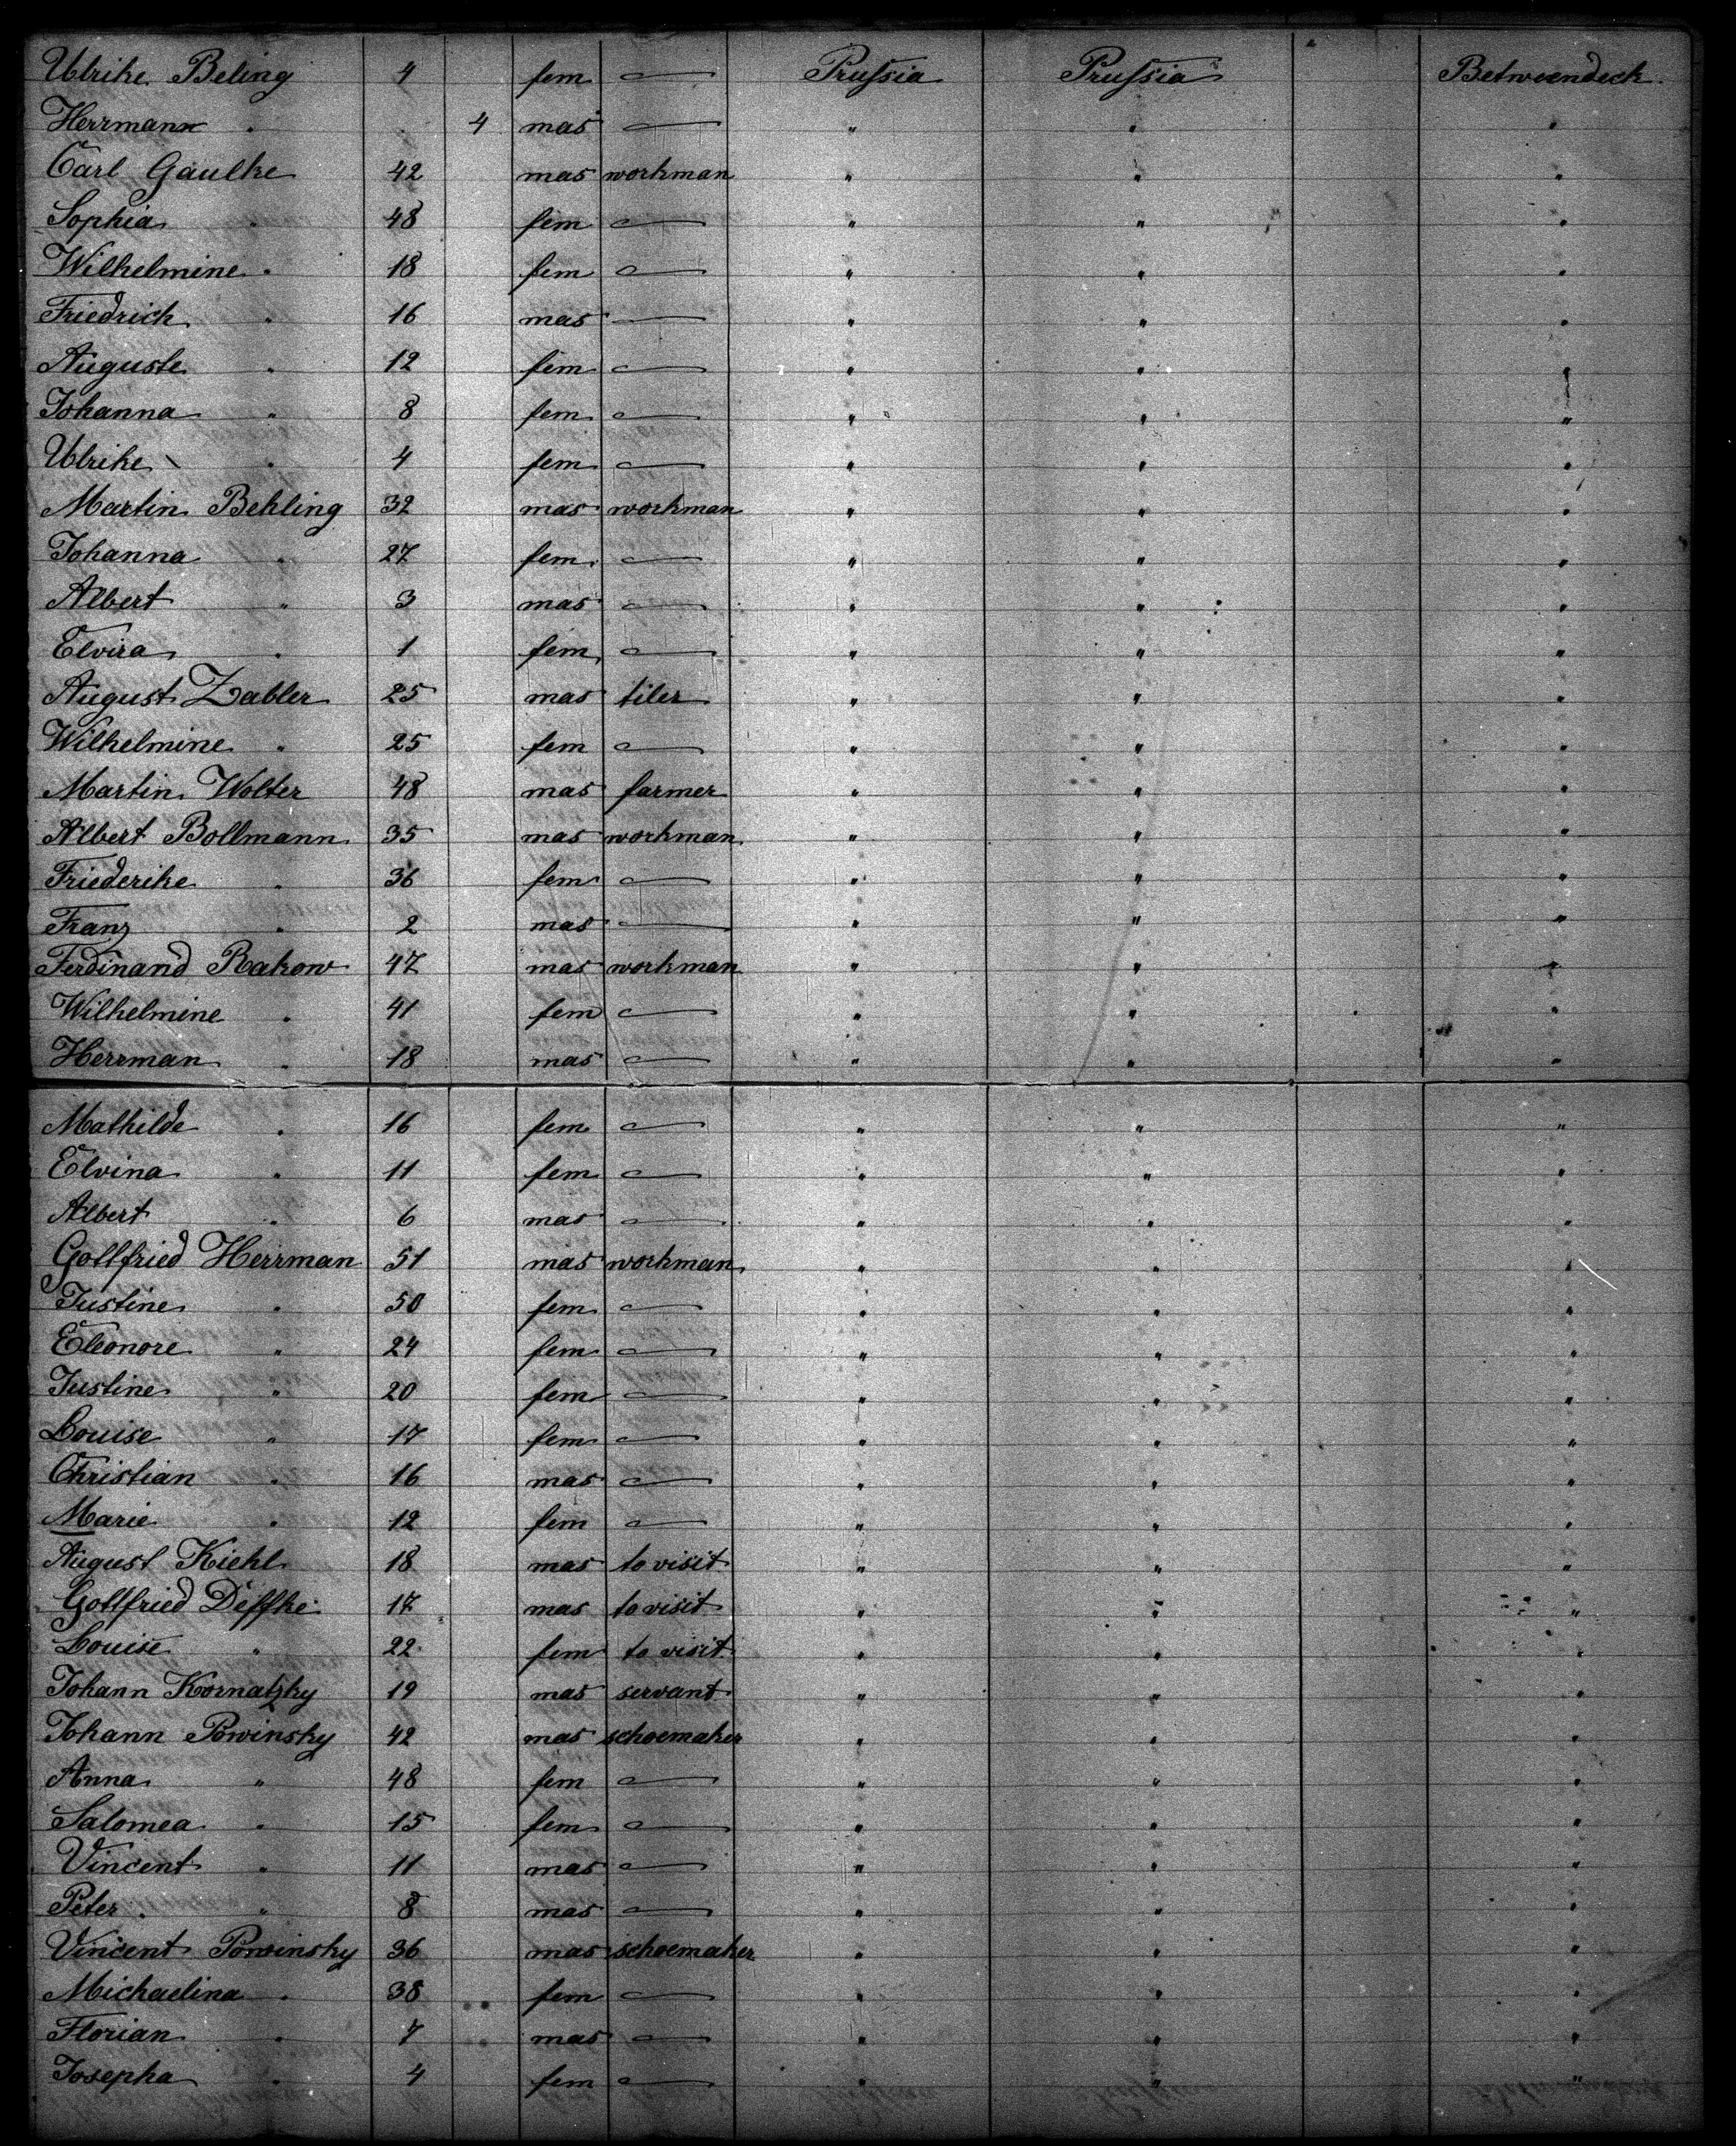 Ulrike Beling 4 fem — Prussia Prussia Betweendeck.
Herrmann " 4 mas — " " "
Carl Gaulke 42 mas workman " " "
Sophia " 48 fem — " " "
Wilhelmine " 18 fem — " " "
Friedrich " 16 mas — " " "
Auguste " 12 fem — " " "
Johanna " 8 fem — " " "
Ulrike " 4 fem — " " "
Martin Behling 32 mas workman " " "
Johanna " 27 fem — " " "
Albert " 3 mas — " " "
Elvira " 1 fem — " " "
August Zabler 25 mas tiler " " "
Wilhelmine " 25 fem — " " "
Martin Wolter 48 mas farmer " " "
Albert Bollmann 35 mas workman " " "
Friederike " 36 fem — " " "
Franz " 2 mas — " " "
Ferdinand Rakow 47 mas workman " " "
Wilhelmine " 41 fem — " " "
Herrman " 18 mas — " " "
Mathilde " 16 fem — " " "
Elvina " 11 fem — " " "
Albert " 6 mas — " " "
Gottfried Herrman 51 mas workman " " "
Justine " 50 fem — " " "
Eleonore " 24 fem — " " "
Justine " 20 fem — " " "
Louise " 17 fem — " " "
Christian " 16 mas — " " "
Marie " 12 fem — " " "
August Kiehl 18 mas to visit " " "
Gottfried Deffke 17 mas to visit " " "
Louise " 22 fem to visit " " "
Johann Kornatzky 19 mas servant " " "
Johann Powinsky 42 mas schoemaker " " "
Anna " 48 fem — " " "
Salomea " 15 fem — " " "
Vincent " 11 mas — " " "
Peter " 8 mas — " " "
Vincent Powinsky 36 mas schoemaker " " "
Michaelina " 38 fem — " " "
Florian " 7 mas — " " "
Josepha " 4 fem — " " "